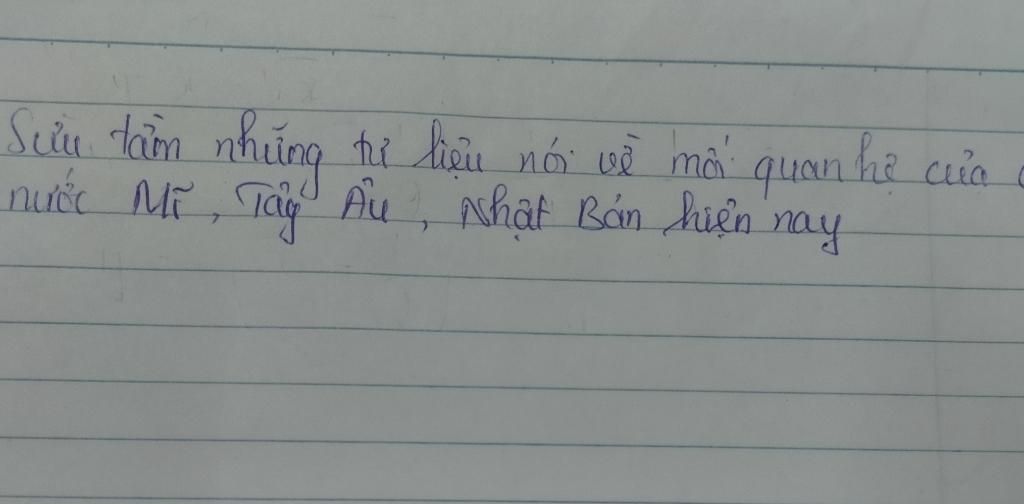 Sưu tầm những tư liệu nói về mối quan hệ của
nước Mĩ, Tây Âu, Nhật Bản hiện nay